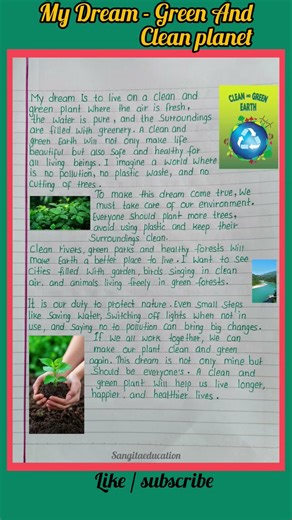 My Dream - Green And
Clean planet
My dream is to live on a clean and
green plant where the air is fresh,
the water is pure, and the Surroundings
are filled with greenery. A clean and
green Earth will not only make life
beautiful but also safe and healthy for
all living beings. I imagine a world where
is no pollution, no plastic waste, and no
Cutting of trees.
CLEAN AND GREEN
EARTH
To make this dream come true, We
must take care of our environment.
Everyone should plant more trees,
avoid using plastic and keep their
Surroundings clean.
Clean rivers, green parks and healthy forests will
make Earth a better place to live. I want to see
Cities filled with garden, birds Singing in clean
air, and animals living freely in green forests.
It is our duty to protect nature. Even Small Steps
like Saving Water, Switching off lights when not in
use, and Saying no to pollution can bring big changes.
If we all work together, We can
make our plant clean and green
again. This dream is not only mine but
Should be everyone's. A clean and
green plant will help us live longer,
happier, and healthier lives.
Sangitaeducation
Like / subscribe